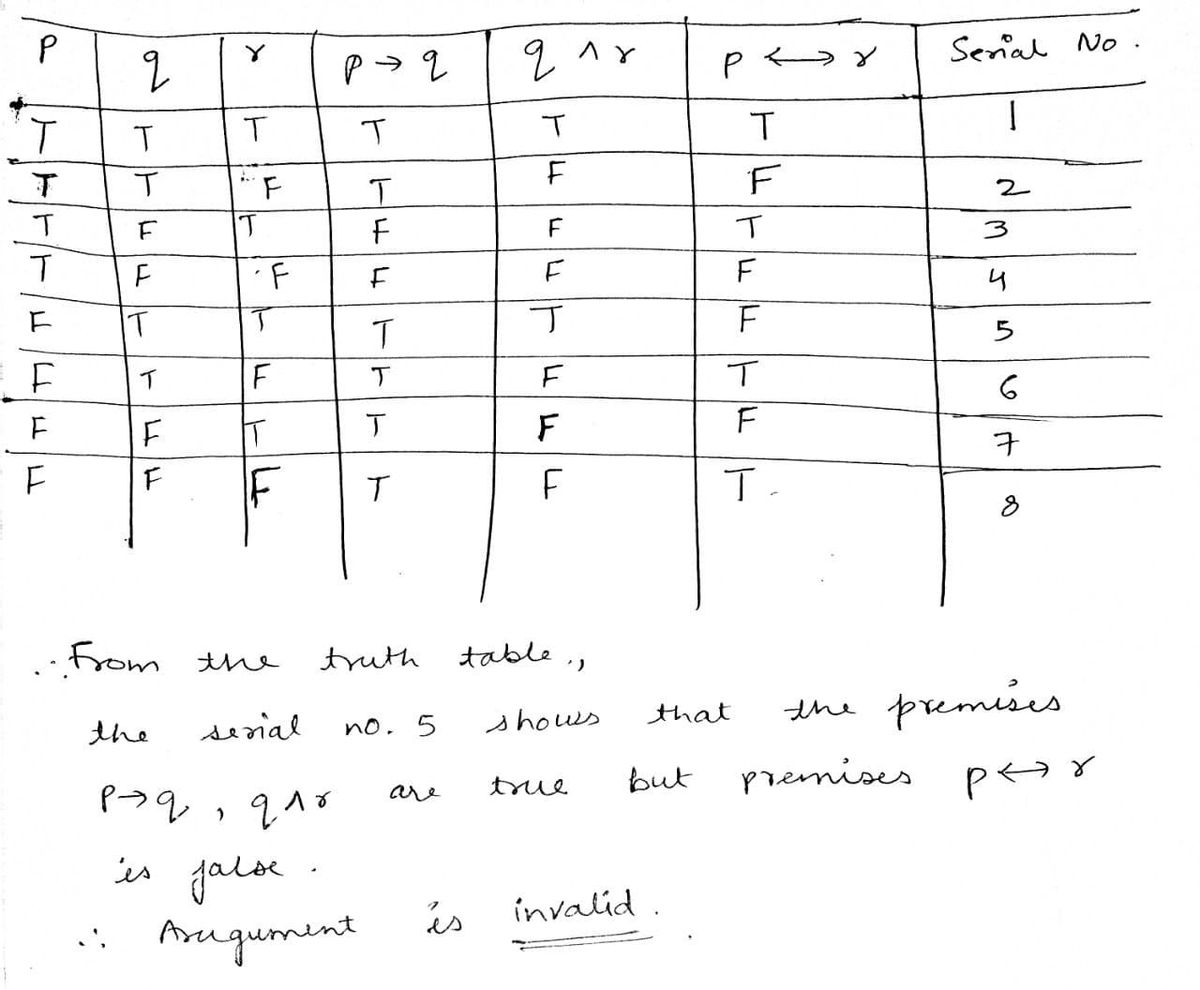 p q r p → q q ∧ r p ↔ r Serial No.
T T T T T T 1
T T F T F F 2
T F T F F T 3
T F F F F F 4
F T T T T F 5
F T F T F T 6
F F T T F F 7
F F F T F T. 8
∴ From the truth table.,
the serial no. 5 shows that the premises
p→q, q∧r are true but premises p↔r
is false.
∴ Aurgument is invalid.